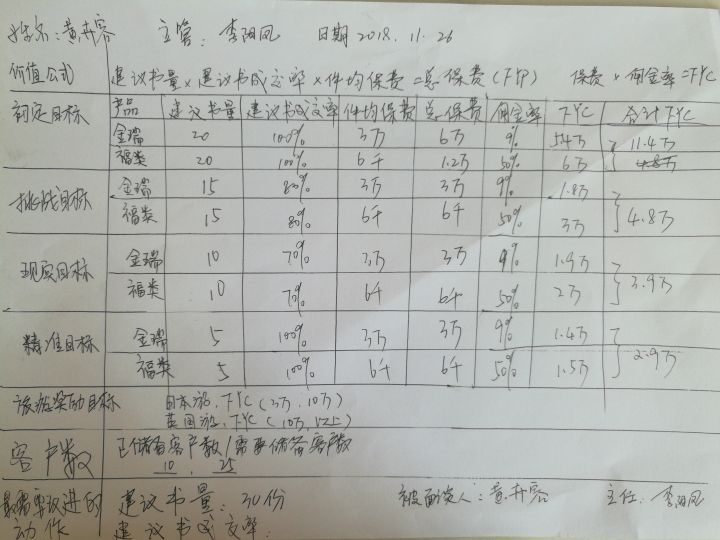 姓名:黄卉容 主管:李阳凤 日期 2018.11.26
价值公式 建议书量×建议书成交率×件均保费=总保费(FYP) 保费×佣金率=FYC
初定目标 产品 建议书量 建议书成交率 件均保费 总保费 佣金率 FYC 合计FYC
金瑞 20 100% 3万 6万 9% 5.4万 11.4万
福类 20 100% 6千 1.2万 50% 6万 4.8万
挑战目标 金瑞 15 80% 3万 3万 9% 1.8万
福类 15 80% 6千 6千 50% 3万 4.8万
现实目标 金瑞 10 70% 3万 3万 9% 1.9万
福类 10 70% 6千 6千 50% 2万 3.9万
精准目标 金瑞 5 100% 3万 3万 9% 1.4万
福类 5 100% 6千 6千 50% 1.5万 2.9万
旅游奖励目标 日本游,FYC(3万,10万)
英国游,FYC(10万,以上)
客户数 已储备客户数/需要储备客户数
10 , 25
最需要改进的 建议书量:30份 被面谈人:黄卉容 主任:李阳凤
动作 建议书成交率: